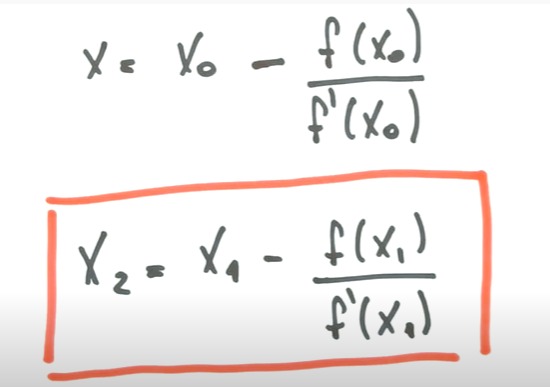 x = x₀ - f(x₀) / f'(x₀)
x₂ = x₁ - f(x₁) / f'(x₁)